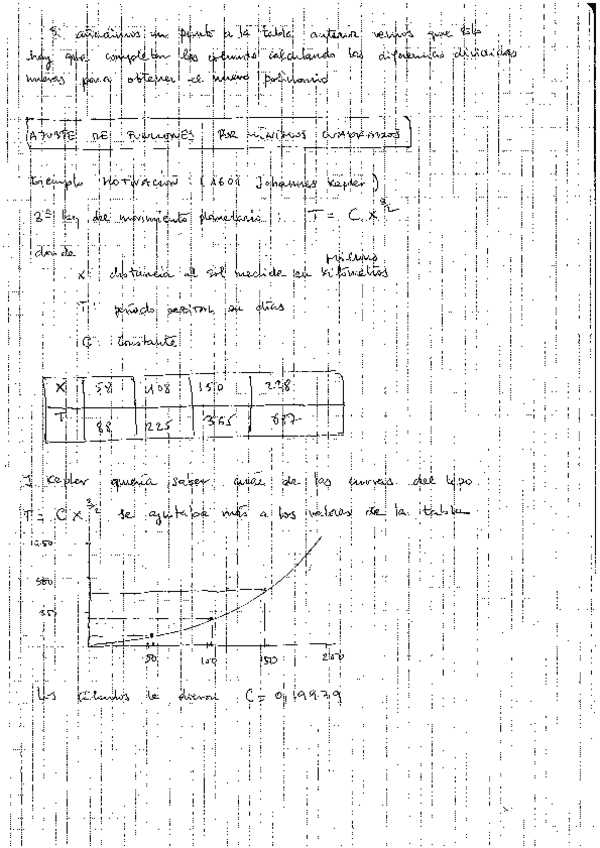 Si añadimos un punto a la tabla anterior vemos que sólo
hay que completar las columnas calculando las diferencias divididas
nuevas para obtener el nuevo polinomio
AJUSTE DE FUNCIONES POR MÍNIMOS CUADRADOS
Ejemplo MOTIVACIÓN (1601 Johannes Kepler)
3ª ley del movimiento planetario: T = C x^3/2
donde
millones
X distancia al sol medida en kilómetros
T periodo orbital en días
C constante
X 58 108 150 228
T 88 225 365 687
Kepler quería saber cuál de las curvas del tipo
T = C x^3/2 se ajustaba más a los valores de la tabla
350
50 100 150 200
Los cálculos le dieron C = 0,19939